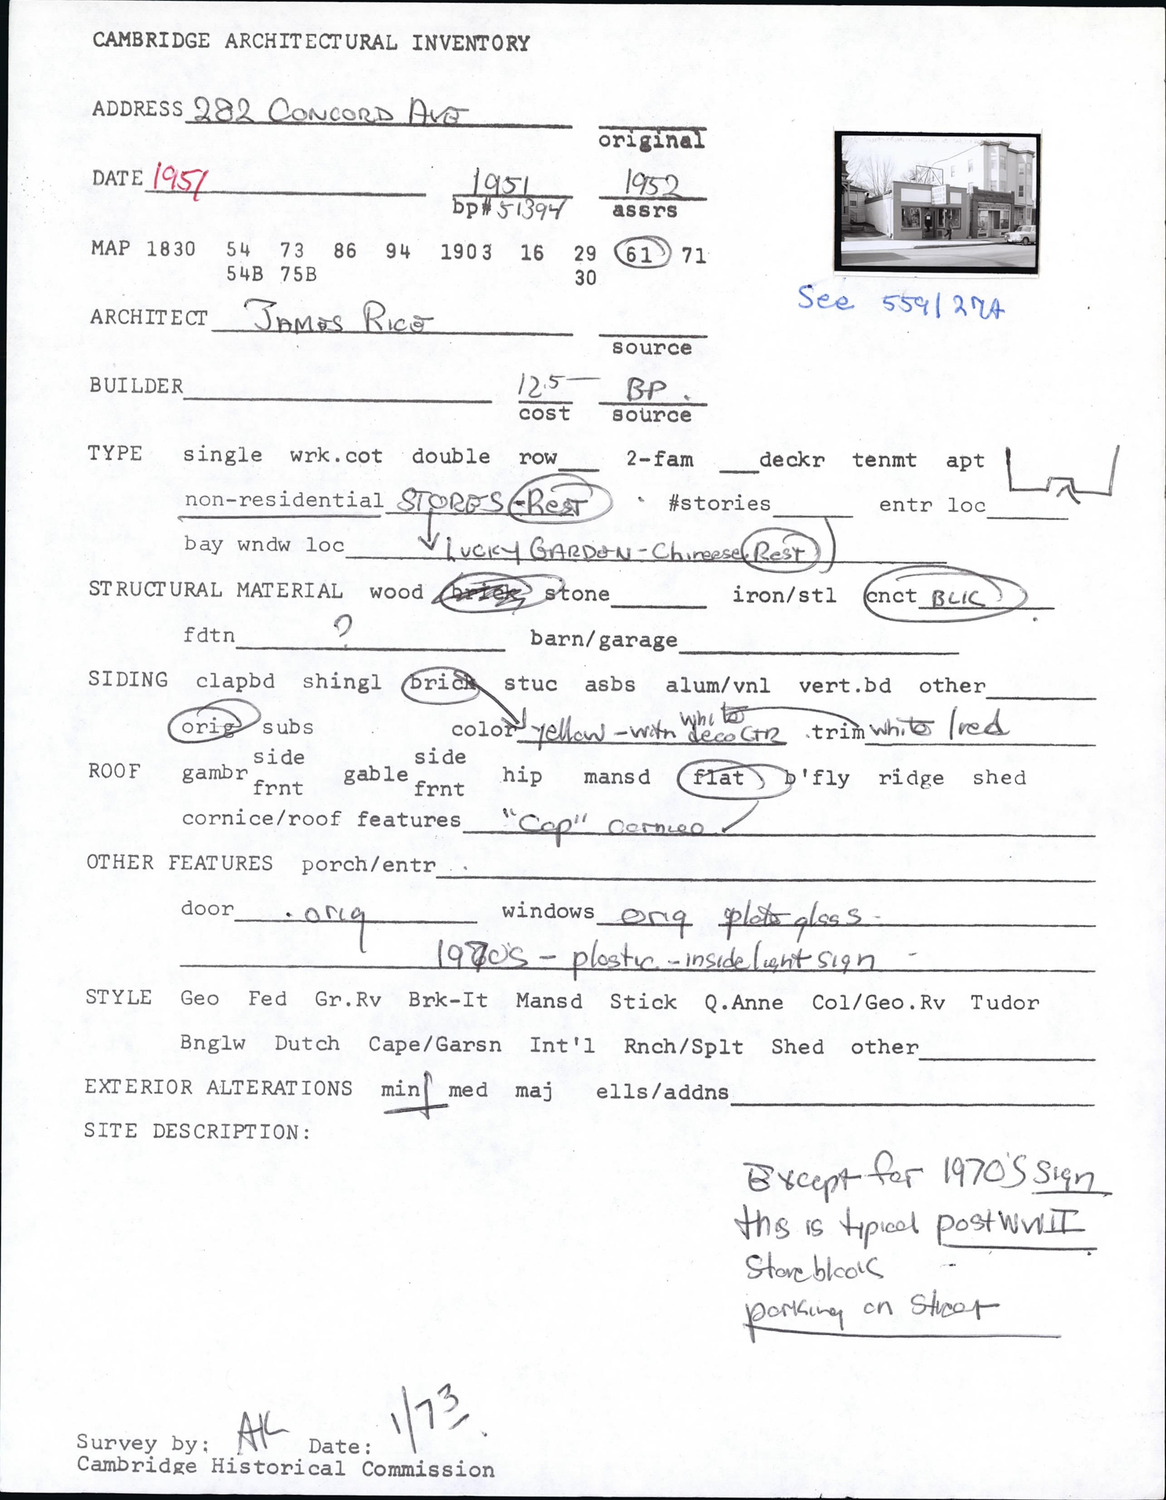 CAMBRIDGE ARCHITECTURAL INVENTORY
ADDRESS 282 CONCORD AVE
original
DATE 1951 1951 1952
bp# 51394 assrs
MAP 1830 54 73 86 94 1903 16 29 61 71
54B 75B 30
See 559/27A
ARCHITECT JAMES RICE
source
BUILDER 12.5— BP.
cost source
TYPE single wrk.cot double row 2-fam deckr tenmt apt
non-residential STORES-Rest #stories entr loc
bay wndw loc LUCKY GARDEN-Chineese Rest
STRUCTURAL MATERIAL wood brick stone iron/stl cnct BLK
fdtn ? barn/garage
SIDING clapbd shingl brick stuc asbs alum/vnl vert.bd other
orig subs color yellow - with white deco CTR trim white/red
ROOF gambr side frnt gable side frnt hip mansd flat b'fly ridge shed
cornice/roof features "Cap" cornice
OTHER FEATURES porch/entr
door orig windows orig plate glass
1970'S - plastic - inside light sign
STYLE Geo Fed Gr.Rv Brk-It Mansd Stick Q.Anne Col/Geo.Rv Tudor
Bnglw Dutch Cape/Garsn Int'l Rnch/Splt Shed other
EXTERIOR ALTERATIONS min med maj ells/addns
SITE DESCRIPTION:
Except for 1970'S sign
this is typical post WWII
Store block
parking on Street
Survey by: AK Date: 1/73
Cambridge Historical Commission